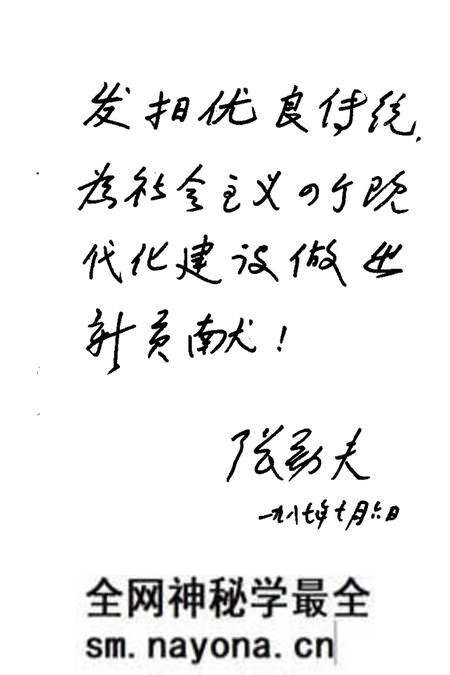 发扬优良传统，
为社会主义四个现
代化建设做出
新贡献！
张劲夫
一九八七年七月六日
全网神秘学最全
sm.nayona.cn